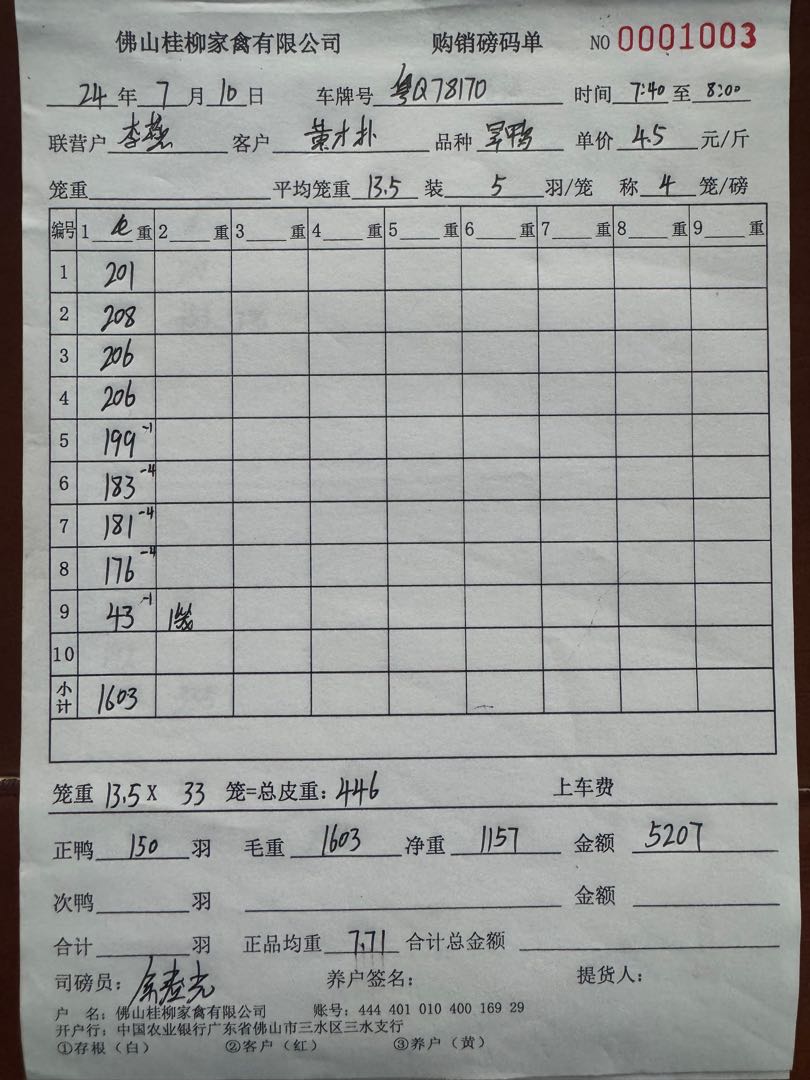 佛山桂柳家禽有限公司 购销磅码单 NO 0001003
24年7月10日 车牌号 粤Q78170 时间 7:40至8:00
联营户 李 客户 黄才扑 品种 旱鸭 单价 4.5 元/斤
笼重 平均笼重 13.5 装 5 羽/笼 称 4 笼/磅
编号 1 毛 重 2 重 3 重 4 重 5 重 6 重 7 重 8 重 9 重
1 201
2 208
3 206
4 206
5 199 -1
6 183 -4
7 181 -4
8 176 -4
9 43 -1 1笼
10
小计 1603
笼重 13.5 X 33 笼=总皮重: 446 上车费
正鸭 150 羽 毛重 1603 净重 1157 金额 5207
次鸭 羽 金额
合计 羽 正品均重 7.71 合计总金额
司磅员: 养户签名: 提货人:
户 名: 佛山桂柳家禽有限公司 账号: 444 401 010 400 169 29
开户行: 中国农业银行广东省佛山市三水区三水支行
①存根(白) ②客户(红) ③养户(黄)